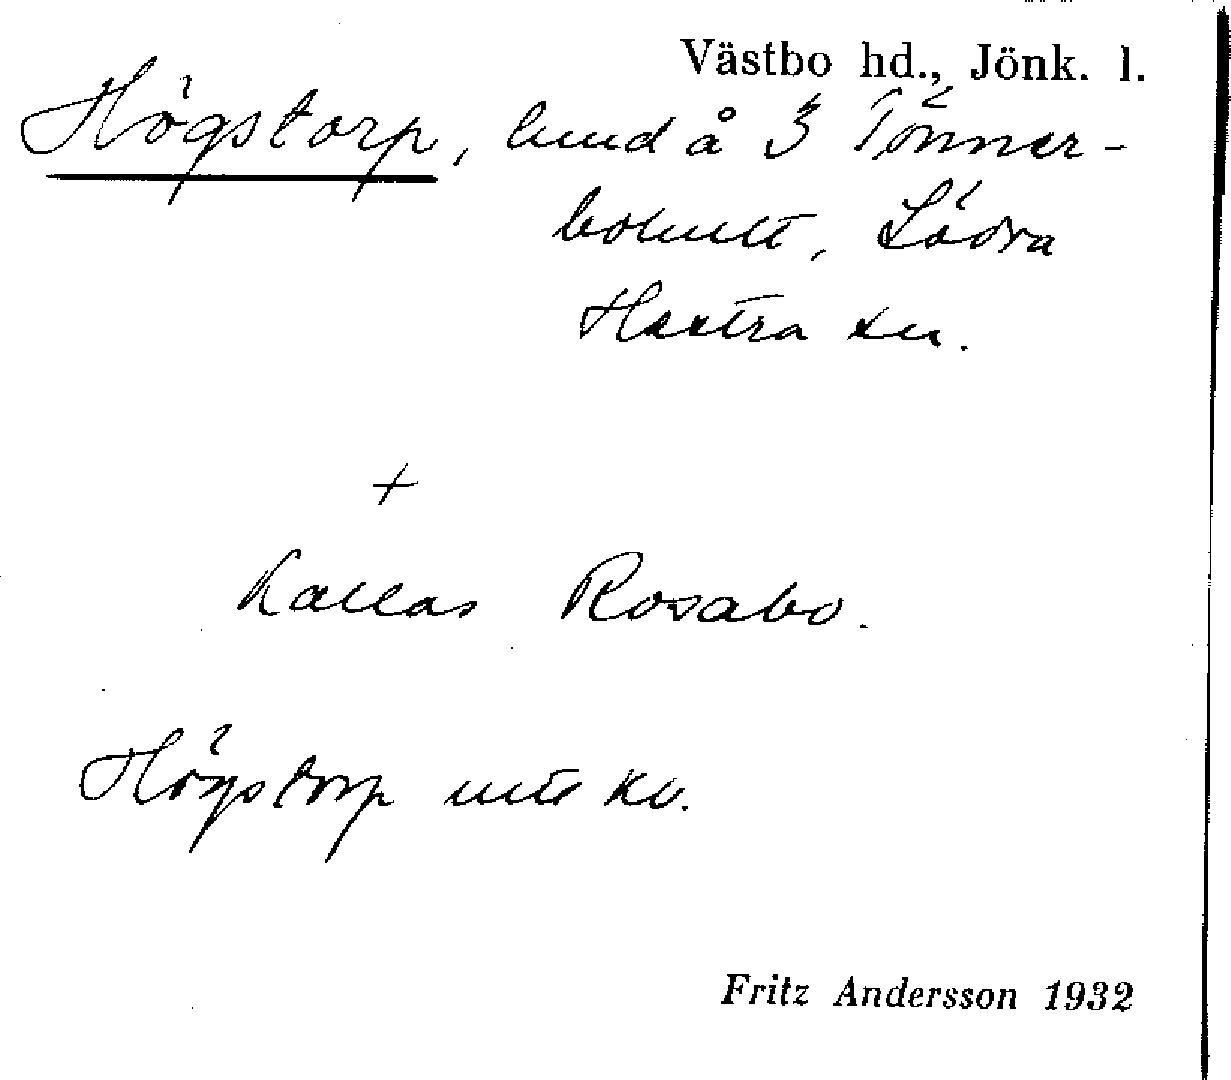 Västbo hd., Jönk. l.
Högstorp, lund å 3 Tönner-
bohult, Södra
Hestra sn.
+
Kallas Rosabo.
Högstorp inte kv.
Fritz Andersson 1932